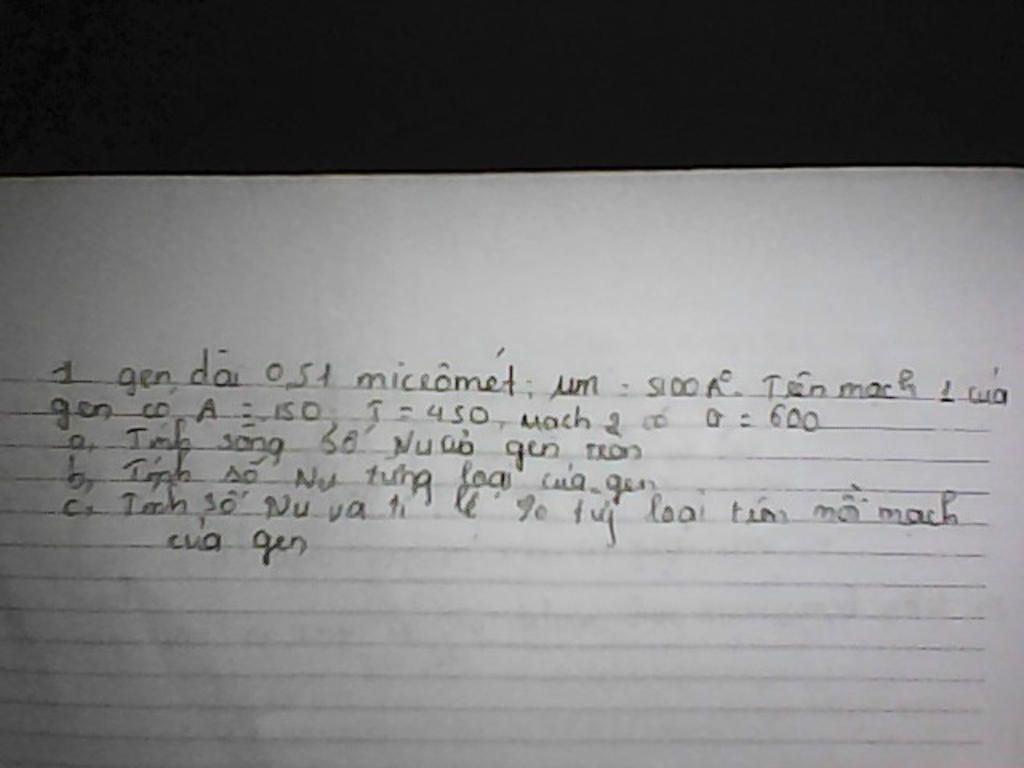 1 gen dài 0,51 micrômét: µm = 5100A°. Trên mạch 1 của
gen có A = 150, T = 450, mạch 2 có G = 600
a, Tính sống số Nu củả gen trên
b, Tính số Nu từng loại của gen
c, Tính số Nu và tỉ lệ % từng loại trên mỗi mạch
của gen